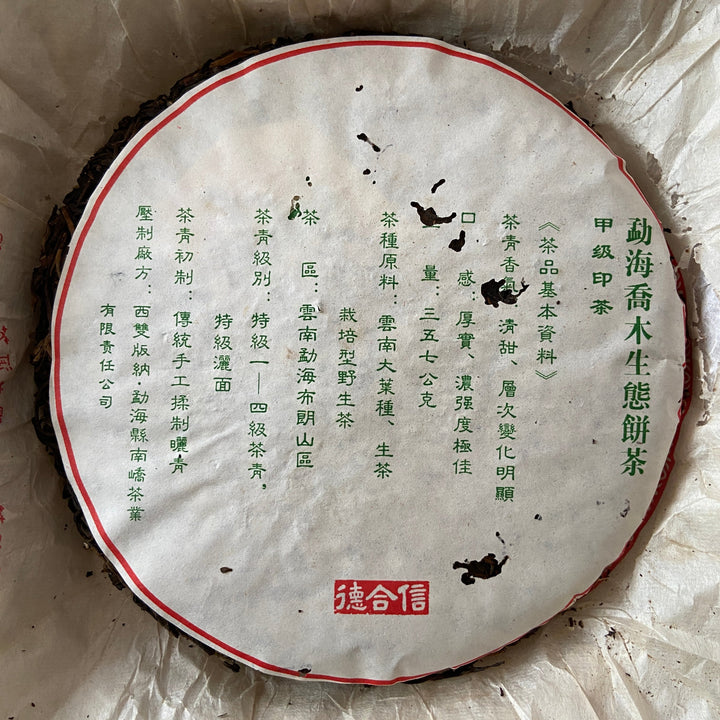 勐海喬木生態餅茶
甲级印茶
《茶品基本資料》
茶青香氣 清甜、層次變化明顯
口 感：厚實、濃强度極佳
量：三五七公克
茶種原料：雲南大葉種、生茶
栽培型野生茶
茶 區：雲南勐海布朗山區
茶青級別：特級一—四級茶青，
特級灑面
茶青初制：傳統手工揉制曬青
壓制廠方：西雙版納·勐海縣南嶠茶業
有限責任公司
德合信